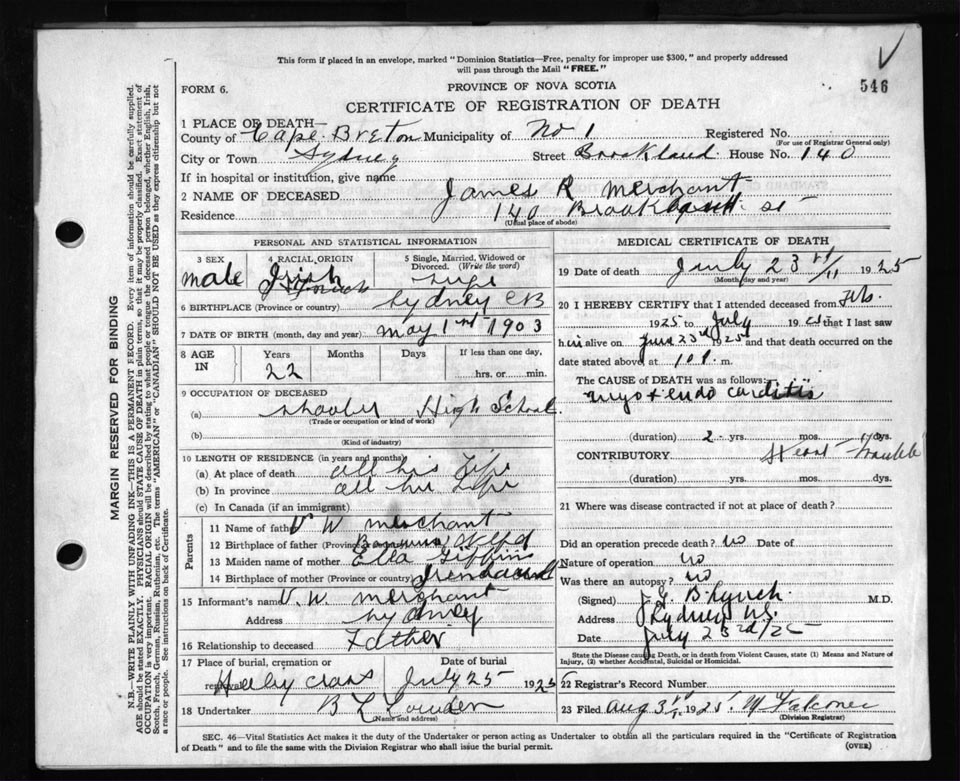 This form if placed in an envelope, marked "Dominion Statistics—Free, penalty for improper use $300," and properly addressed
will pass through the Mail "FREE."
546
FORM 6.
PROVINCE OF NOVA SCOTIA
CERTIFICATE OF REGISTRATION OF DEATH
1 PLACE OF DEATH—
County of Cape Breton Municipality of No 1 Registered No.
(For use of Registrar General only)
City or Town Sydney Street Brookland House No. 140
If in hospital or institution, give name
2 NAME OF DECEASED James R Merchant
Residence 140 St
(Usual place of abode)
PERSONAL AND STATISTICAL INFORMATION
3 SEX male
4 RACIAL ORIGIN Irish
5 Single, Married, Widowed or Divorced. (Write the word)
6 BIRTHPLACE (Province or country) Sydney CB
7 DATE OF BIRTH (month, day and year) may 1 1903
8 AGE IN Years Months Days If less than one day,
22 hrs. or min.
9 OCCUPATION OF DECEASED
(a) High School
(Trade or occupation or kind of work)
(b)
(Kind of industry)
10 LENGTH OF RESIDENCE (in years and months)
(a) At place of death all his Life
(b) In province all his Life
(c) In Canada (if an immigrant)
Parents
11 Name of father V W merchant
12 Birthplace of father (Province Nfld
13 Maiden name of mother Ella Giffins
14 Birthplace of mother (Province or country)
15 Informant's name V. W. merchant
Address Sydney
16 Relationship to deceased Father
17 Place of burial, cremation or Date of burial
Holy cross July 25 1925
18 Undertaker
(Name and address)
MEDICAL CERTIFICATE OF DEATH
19 Date of death July 23 1925
(Month, day and year)
20 I HEREBY CERTIFY that I attended deceased from Feb.
1925 to July 19 that I last saw
him alive on 23rd 1925 and that death occurred on the
date stated above, at 10 P. m.
The CAUSE of DEATH was as follows:
myo + endo carditis
(duration) 2 yrs. mos. dys.
CONTRIBUTORY Heart trouble
(duration) yrs. mos. dys.
21 Where was disease contracted if not at place of death?
Did an operation precede death? no Date of
Nature of operation no
Was there an autopsy? no
(Signed) Lynch M.D.
Address Sydney N.S.
Date July 23rd/25
State the Disease causing Death, or in death from Violent Causes, state (1) Means and Nature of
Injury, (2) whether Accidental, Suicidal or Homicidal.
22 Registrar's Record Number
23 Filed Aug 31 1925 Falconer
(Division Registrar)
SEC. 46—Vital Statistics Act makes it the duty of the Undertaker or person acting as Undertaker to obtain all the particulars required in the "Certificate of Registration
of Death" and to file the same with the Division Registrar who shall issue the burial permit.
(OVER)
MARGIN RESERVED FOR BINDING
N.B.—WRITE PLAINLY WITH UNFADING INK—THIS IS A PERMANENT RECORD. Every item of information should be carefully supplied.
AGE should be stated EXACTLY. PHYSICIANS should STATE CAUSE OF DEATH in plain terms, so that it may be properly classified. Exact statement of
OCCUPATION is very important. RACIAL ORIGIN will be described by stating to what people or tongue the deceased person belonged, whether English, Irish,
Scotch, French, German, Russian, Ruthenian, etc. The terms "AMERICAN" or "CANADIAN" SHOULD NOT BE USED as they express citizenship but not
a race or people. See instructions on back of Certificate.